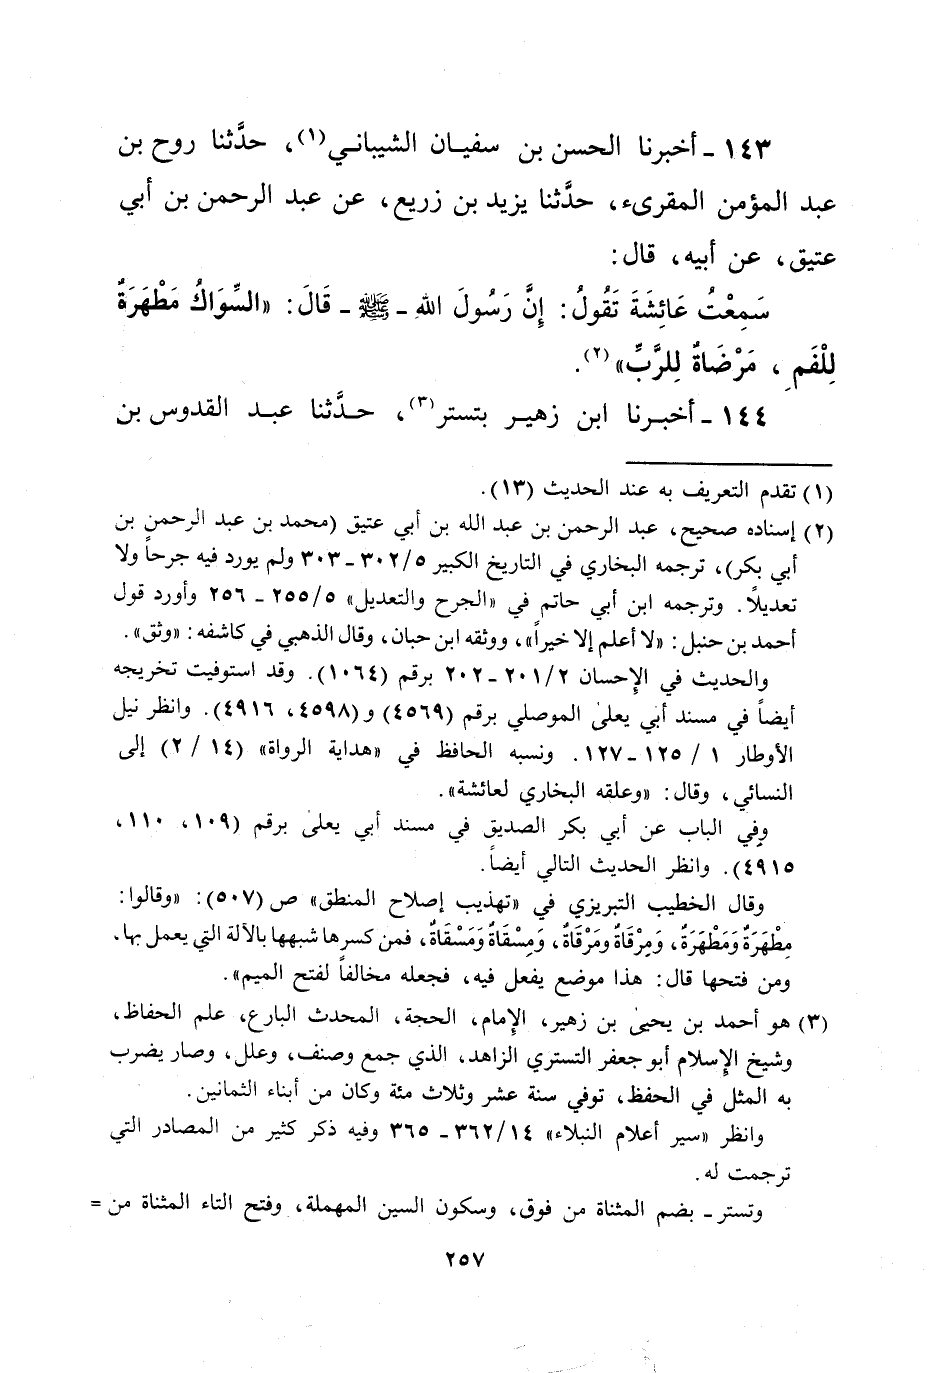 ١٤٣ ـ أخبرنا الحسن بن سفيـان الشيبانـي(١)، حدَّثنا روح بن
عبد المؤمن المقرىء، حدَّثنا يزيد بن زريع، عن عبد الرحمن بن أبي
عتيق، عن أبيه، قال:
سَمِعْتُ عَائِشَةَ تَقُولُ: إِنَّ رَسُولَ اللهِ ـ ﷺ ـ قَالَ: «السِّوَاكُ مَطْهَرَةٌ
لِلْفَمِ، مَرْضَاةٌ لِلرَّبِّ»(٢).
١٤٤ ـ أخبـرنا ابن زهيـر بتستر(٣)، حـدَّثنا عبـد القدوس بن
(١) تقدم التعريف به عند الحديث (١٣).
(٢) إسناده صحيح، عبد الرحمن بن عبد الله بن أبي عتيق (محمد بن عبد الرحمن بن
أبي بكر)، ترجمه البخاري في التاريخ الكبير ٣٠٢/٥ ـ ٣٠٣ ولم يورد فيه جرحاً ولا
تعديلًا. وترجمه ابن أبي حاتم في «الجرح والتعديل» ٢٥٥/٥ ـ ٢٥٦ وأورد قول
أحمد بن حنبل: «لا أعلم إلا خيراً»، ووثقه ابن حبان، وقال الذهبي في كاشفه: «وثق».
والحديث في الإحسان ٢٠١/٢ ـ ٢٠٢ برقم (١٠٦٤). وقد استوفيت تخريجه
أيضاً في مسند أبي يعلىٰ الموصلي برقم (٤٥٦٩) و(٤٥٩٨، ٤٩١٦). وانظر نيل
الأوطار ١ / ١٢٥ ـ ١٢٧. ونسبه الحافظ في «هداية الرواة» (١٤ / ٢) إلى
النسائي، وقال: «وعلقه البخاري لعائشة».
وفي الباب عن أبي بكر الصديق في مسند أبي يعلىٰ برقم (١٠٩، ١١٠،
٤٩١٥). وانظر الحديث التالي أيضاً.
وقال الخطيب التبريزي في «تهذيب إصلاح المنطق» ص (٥٠٧): «وقالوا:
مِطْهَرَةٌ وَمَطْهَرَةٌ، وَمِرْقَاةٌ ومَرْقَاةٌ، وَمِسْقَاةٌ وَمَسْقَاةٌ، فمن كسرها شبهها بالآلة التي يعمل بها،
ومن فتحها قال: هذا موضع يفعل فيه، فجعله مخالفاً لفتح الميم».
(٣) هو أحمد بن يحيىٰ بن زهير، الإمام، الحجة، المحدث البارع، علم الحفاظ،
وشيخ الإسلام أبو جعفر التستري الزاهد، الذي جمع وصنف، وعلل، وصار يضرب
به المثل في الحفظ، توفي سنة عشر وثلاث مئة وكان من أبناء الثمانين.
وانظر «سير أعلام النبلاء» ٣٦٢/١٤ ـ ٣٦٥ وفيه ذكر كثير من المصادر التي
ترجمت له.
وتستر ـ بضم المثناة من فوق، وسكون السين المهملة، وفتح التاء المثناة من =
٢٥٧